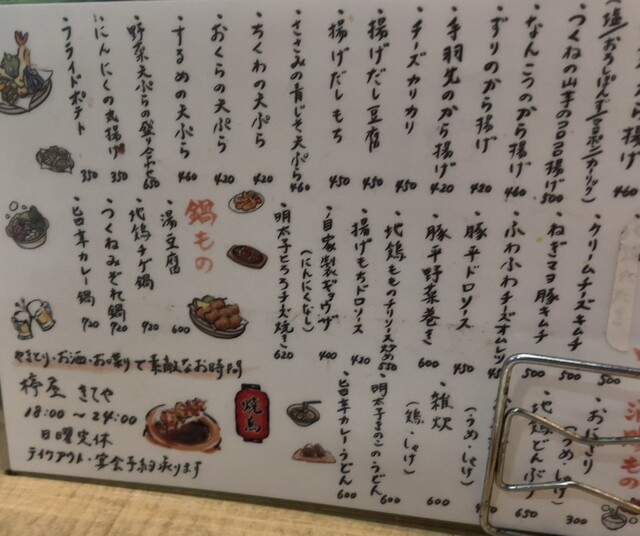 (塩/おろしぽんず/ガーリック)
・つくねの山芋のコロコロ揚げ 500
・なんこつのから揚げ 460
・ずりのから揚げ 420
・手羽先のから揚げ 420
・チーズカリカリ 450
・揚げだし豆腐 450
・揚げだしもち 450
・ささみの青じそ天ぷら 460
・ちくわの天ぷら 420
・おくらの天ぷら 420
・するめの天ぷら 460
・野菜天ぷらの盛り合わせ 650
・にんにくの丸揚げ 350
・フライドポテト 350
・クリームチーズキムチ 500
・ねぎマヨ豚キムチ 500
・ふわふわチーズオムレツ
・豚平ドロソース 450
・豚平野菜巻き 600
・地鶏もものチリソース炒め 550
・揚げもちドロソース 420
・自家製ギョウザ 400
(にんにくなし)
・明太子とろろチーズ焼き 620
鍋もの
・湯豆腐 600
・地鶏チゲ鍋 920
・つくねみぞれ鍋 920
・旨辛カレー鍋 920
・おにぎり 300
(うめ・しゃけ)
・地鶏どんぶり 650
・雑炊 600
(うめ・しゃけ)
(鶏・しゃけ)
・明太子きのこのうどん 600
・旨辛カレーうどん 600
やきとり・お酒・お喋りで素敵なお時間
椁屋 きてや
18:00～24:00
日曜定休
テイクアウト・宴会予約承ります
焼鳥